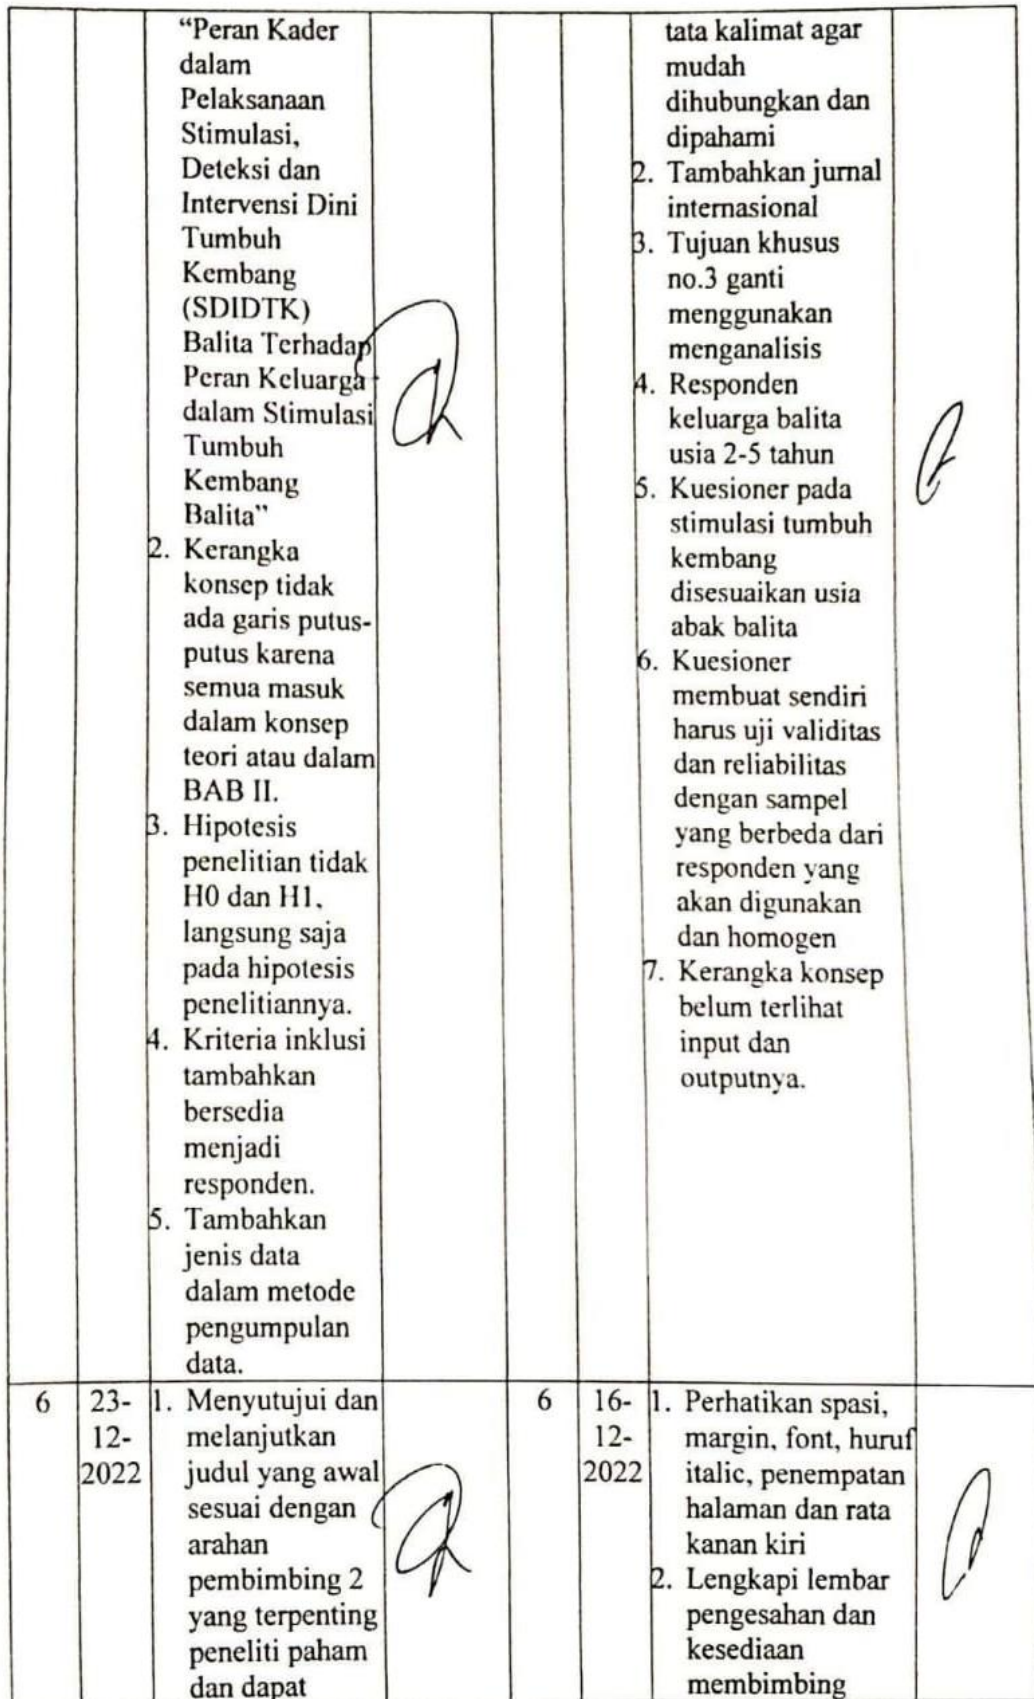 “Peran Kader
dalam
Pelaksanaan
Stimulasi,
Deteksi dan
Intervensi Dini
Tumbuh
Kembang
(SDIDTK)
Balita Terhadap
Peran Keluarga
dalam Stimulasi
Tumbuh
Kembang
Balita”
2. Kerangka
konsep tidak
ada garis putus-
putus karena
semua masuk
dalam konsep
teori atau dalam
BAB II.
3. Hipotesis
penelitian tidak
H0 dan H1,
langsung saja
pada hipotesis
penelitiannya.
4. Kriteria inklusi
tambahkan
bersedia
menjadi
responden.
5. Tambahkan
jenis data
dalam metode
pengumpulan
data.
tata kalimat agar
mudah
dihubungkan dan
dipahami
2. Tambahkan jurnal
internasional
3. Tujuan khusus
no.3 ganti
menggunakan
menganalisis
4. Responden
keluarga balita
usia 2-5 tahun
5. Kuesioner pada
stimulasi tumbuh
kembang
disesuaikan usia
abak balita
6. Kuesioner
membuat sendiri
harus uji validitas
dan reliabilitas
dengan sampel
yang berbeda dari
responden yang
akan digunakan
dan homogen
7. Kerangka konsep
belum terlihat
input dan
outputnya.
6
23-
12-
2022
1. Menyutujui dan
melanjutkan
judul yang awal
sesuai dengan
arahan
pembimbing 2
yang terpenting
peneliti paham
dan dapat
6
16-
12-
2022
1. Perhatikan spasi,
margin, font, huruf
italic, penempatan
halaman dan rata
kanan kiri
2. Lengkapi lembar
pengesahan dan
kesediaan
membimbing